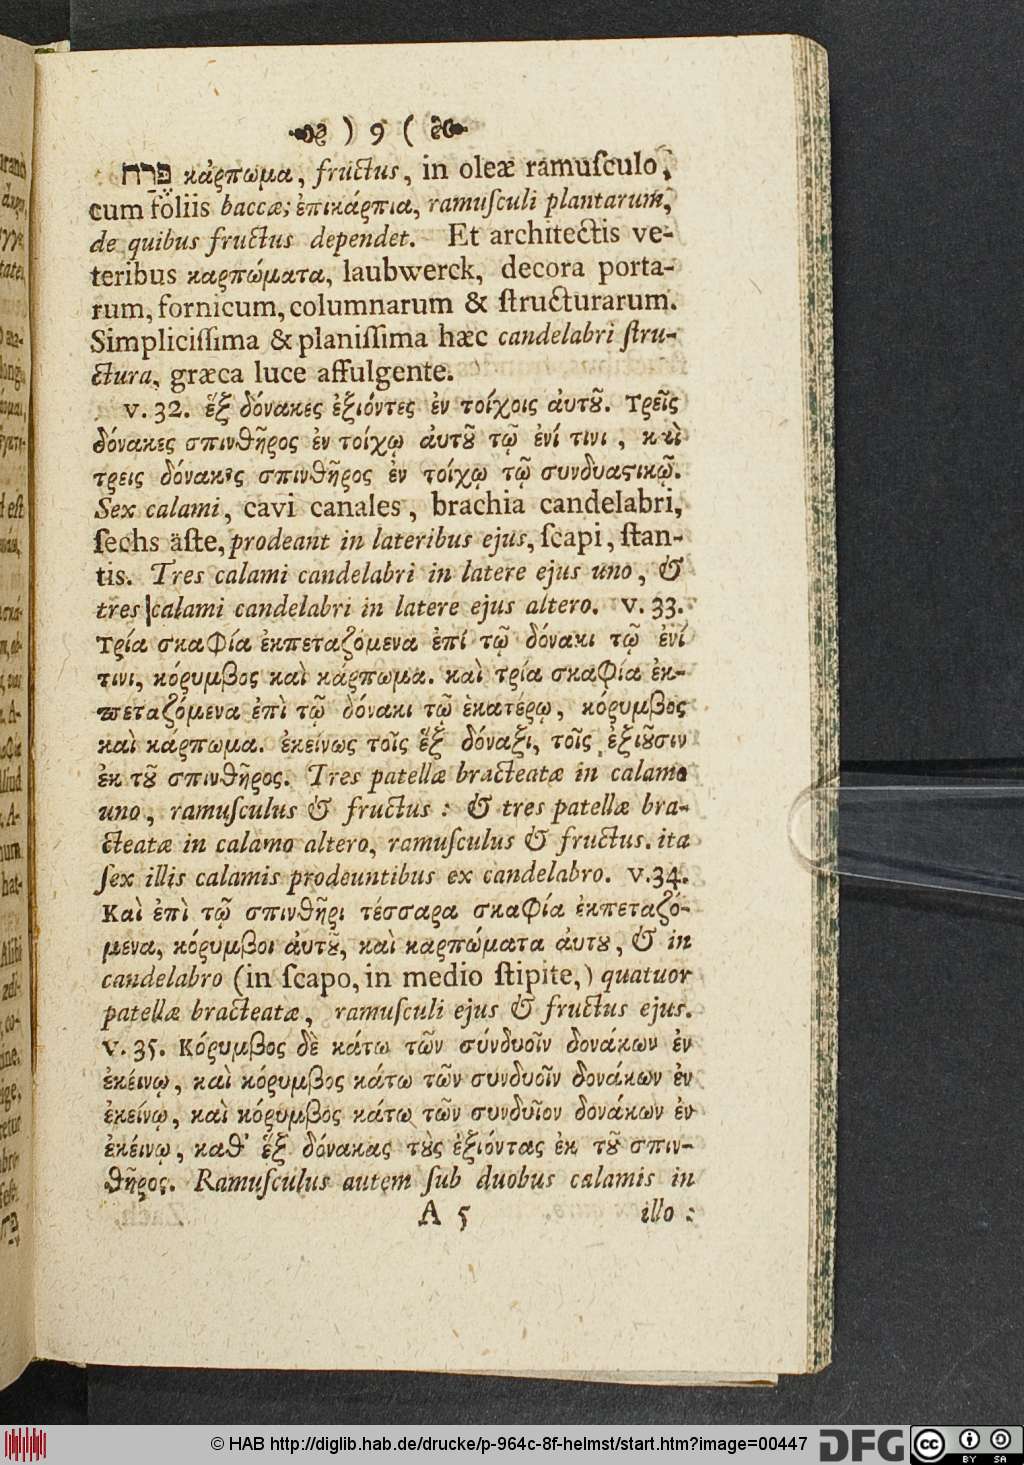 ) 9 (
פֶּרַח κάρπωμα, fructus, in oleæ ramuſculo,
cum foliis baccæ; ἐπικάρπια, ramuſculi plantarum,
de quibus fructus dependet. Et architectis ve-
teribus καρπώματα, laubwerck, decora porta-
rum, fornicum, columnarum & ſtructurarum.
Simpliciſſima & planiſſima hæc candelabri ſtru-
ctura, græca luce affulgente.
v. 32. ἕξ δόνακες ἐξιόντες ἐν τοίχοις ἀυτῦ. Τρεῖς
δόνακες σπινθῆρος ἐν τοίχῳ ἀυτῦ τῷ ἑνί τινι, καὶ
τρεις δόνακες σπινθῆρος ἐν τοίχῳ τῷ συνδυαςικῷ.
Sex calami, cavi canales, brachia candelabri,
ſechs äſte, prodeant in lateribus ejus, ſcapi, ſtan-
tis. Tres calami candelabri in latere ejus uno, &
tres calami candelabri in latere ejus altero. v. 33.
Τρία σκαφία ἐκπεταζόμενα ἐπί τῷ δόνακι τῷ ἑνί
τινι, κόρυμβος καὶ κάρπωμα. καὶ τρία σκαφία ἐκ-
πεταζόμενα ἐπὶ τῷ δόνακι τῷ ἑκατέρῳ, κόρυμβος
καὶ κάρπωμα. ἐκείνως τοῖς ἕξ δόναξι, τοῖς ἐξιῦσιν
ἐκ τῦ σπινθῆρος. Tres patellæ bracteatæ in calamo
uno, ramuſculus & fructus: & tres patellæ bra-
cteatæ in calamo altero, ramuſculus & fructus. ita
ſex illis calamis prodeuntibus ex candelabro. v. 34.
Καὶ ἐπὶ τῷ σπινθῆρι τέσσαρα σκαφία ἐκπεταζό-
μενα, κόρυμβοι ἀυτῦ, καὶ καρπώματα ἀυτυ, & in
candelabro (in ſcapo, in medio ſtipite,) quatuor
patellæ bracteatæ, ramuſculi ejus & fructus ejus.
v. 35. Κόρυμβος δὲ κάτω τῶν σύνδυοῖν δονάκων ἐν
ἐκέινῳ, καὶ κόρυμβος κάτω τῶν συνδυοῖν δονάκων ἐν
ἐκείνῳ, καὶ κόρυμβος κάτω τῶν συνδυῖον δονάκων ἐν
ἐκέινῳ, καθ' ἕξ δόνακας τὺς ἐξιόντας ἐκ τῦ σπιν-
θῆρος. Ramuſculus autem ſub duobus calamis in
A 5 illo:
© HAB http://diglib.hab.de/drucke/p-964c-8f-helmst/start.htm?image=00447
DFG cc BY SA